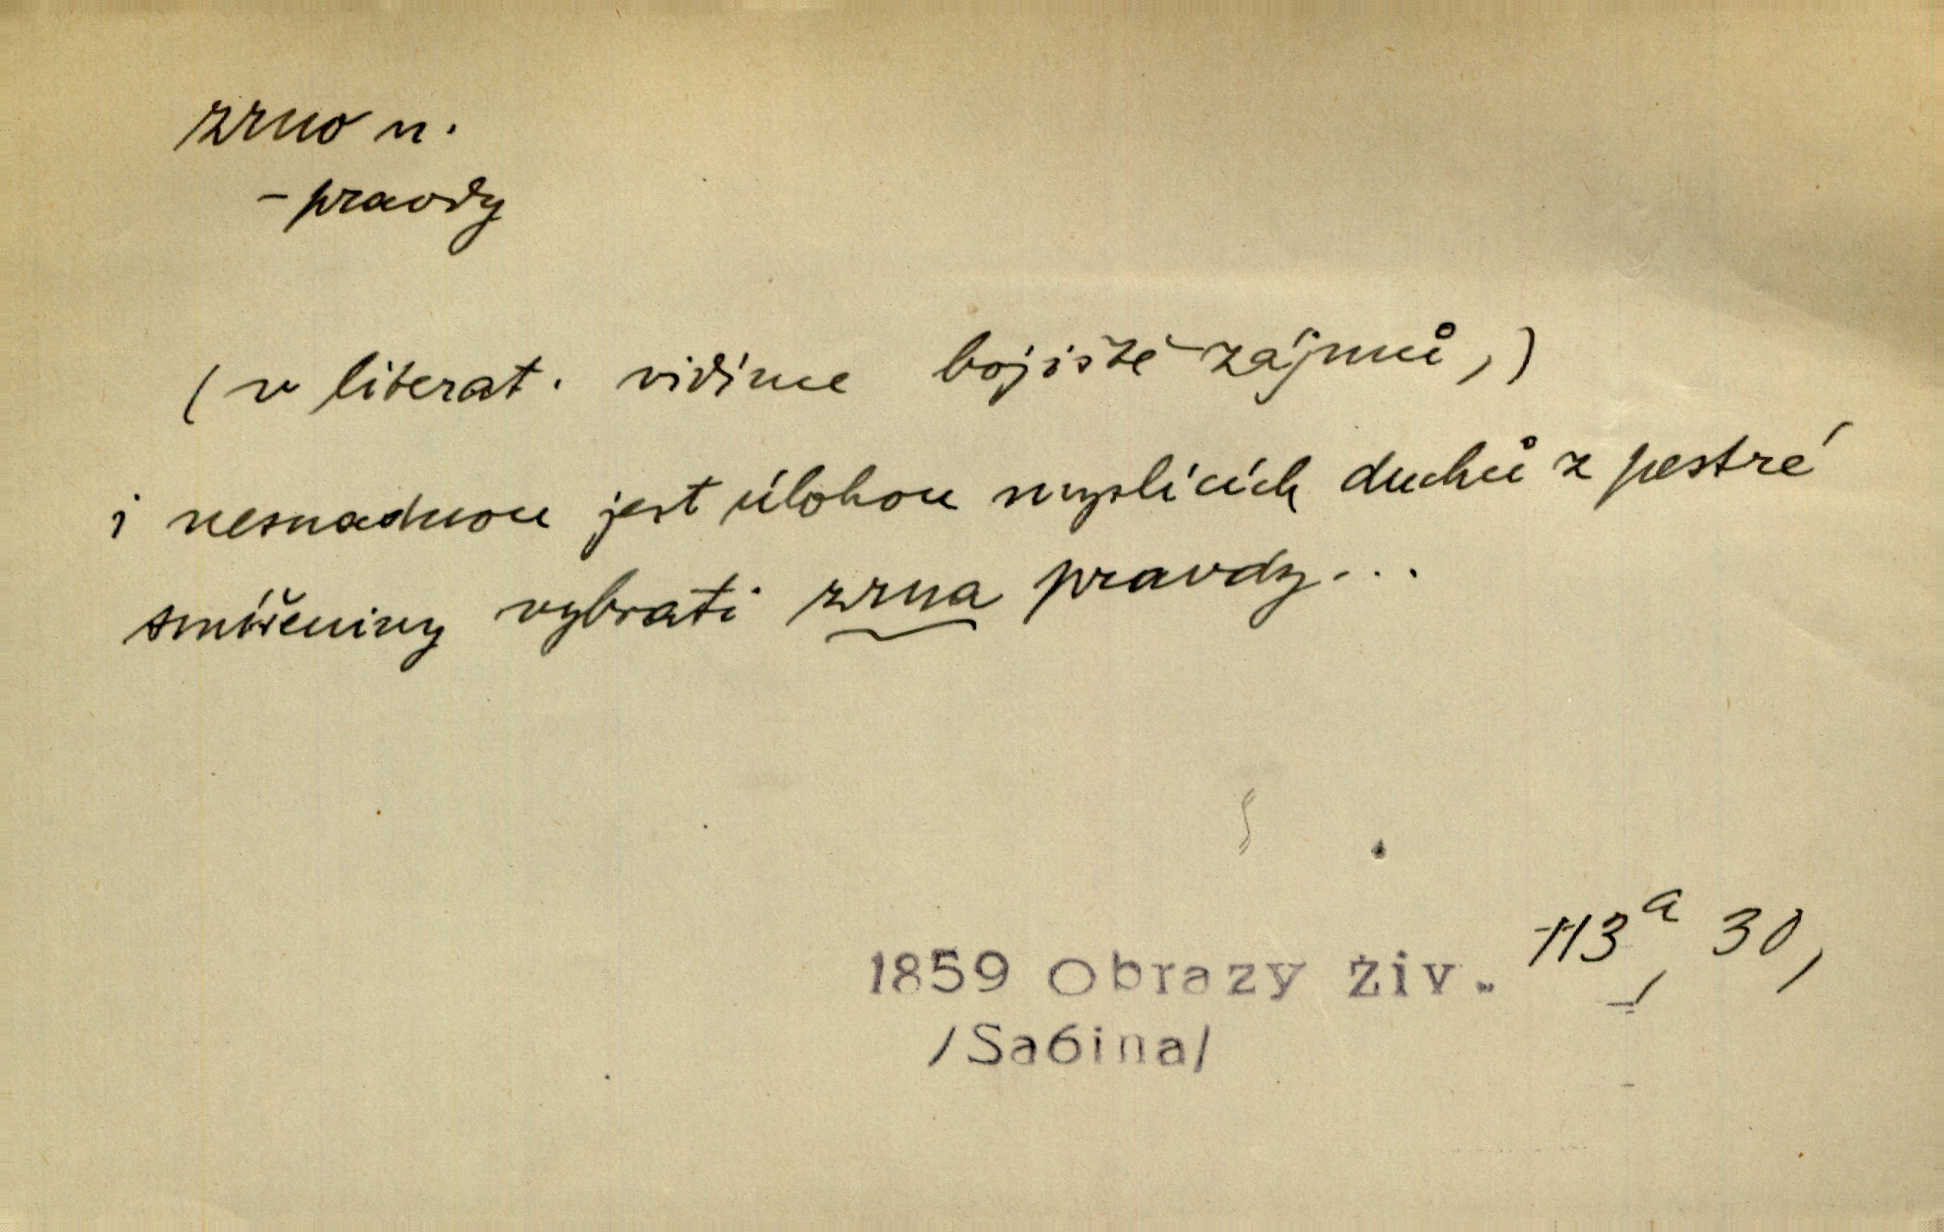 zrno n.
- pravdy
(v literat. vidíme bojiště zájmů,)
i nesnadnou jest úlohou myslících duchů z pestré
smíšeniny vybrati zrna pravdy...
1859 Obrazy živ. 113a, 30,
/Sabina/